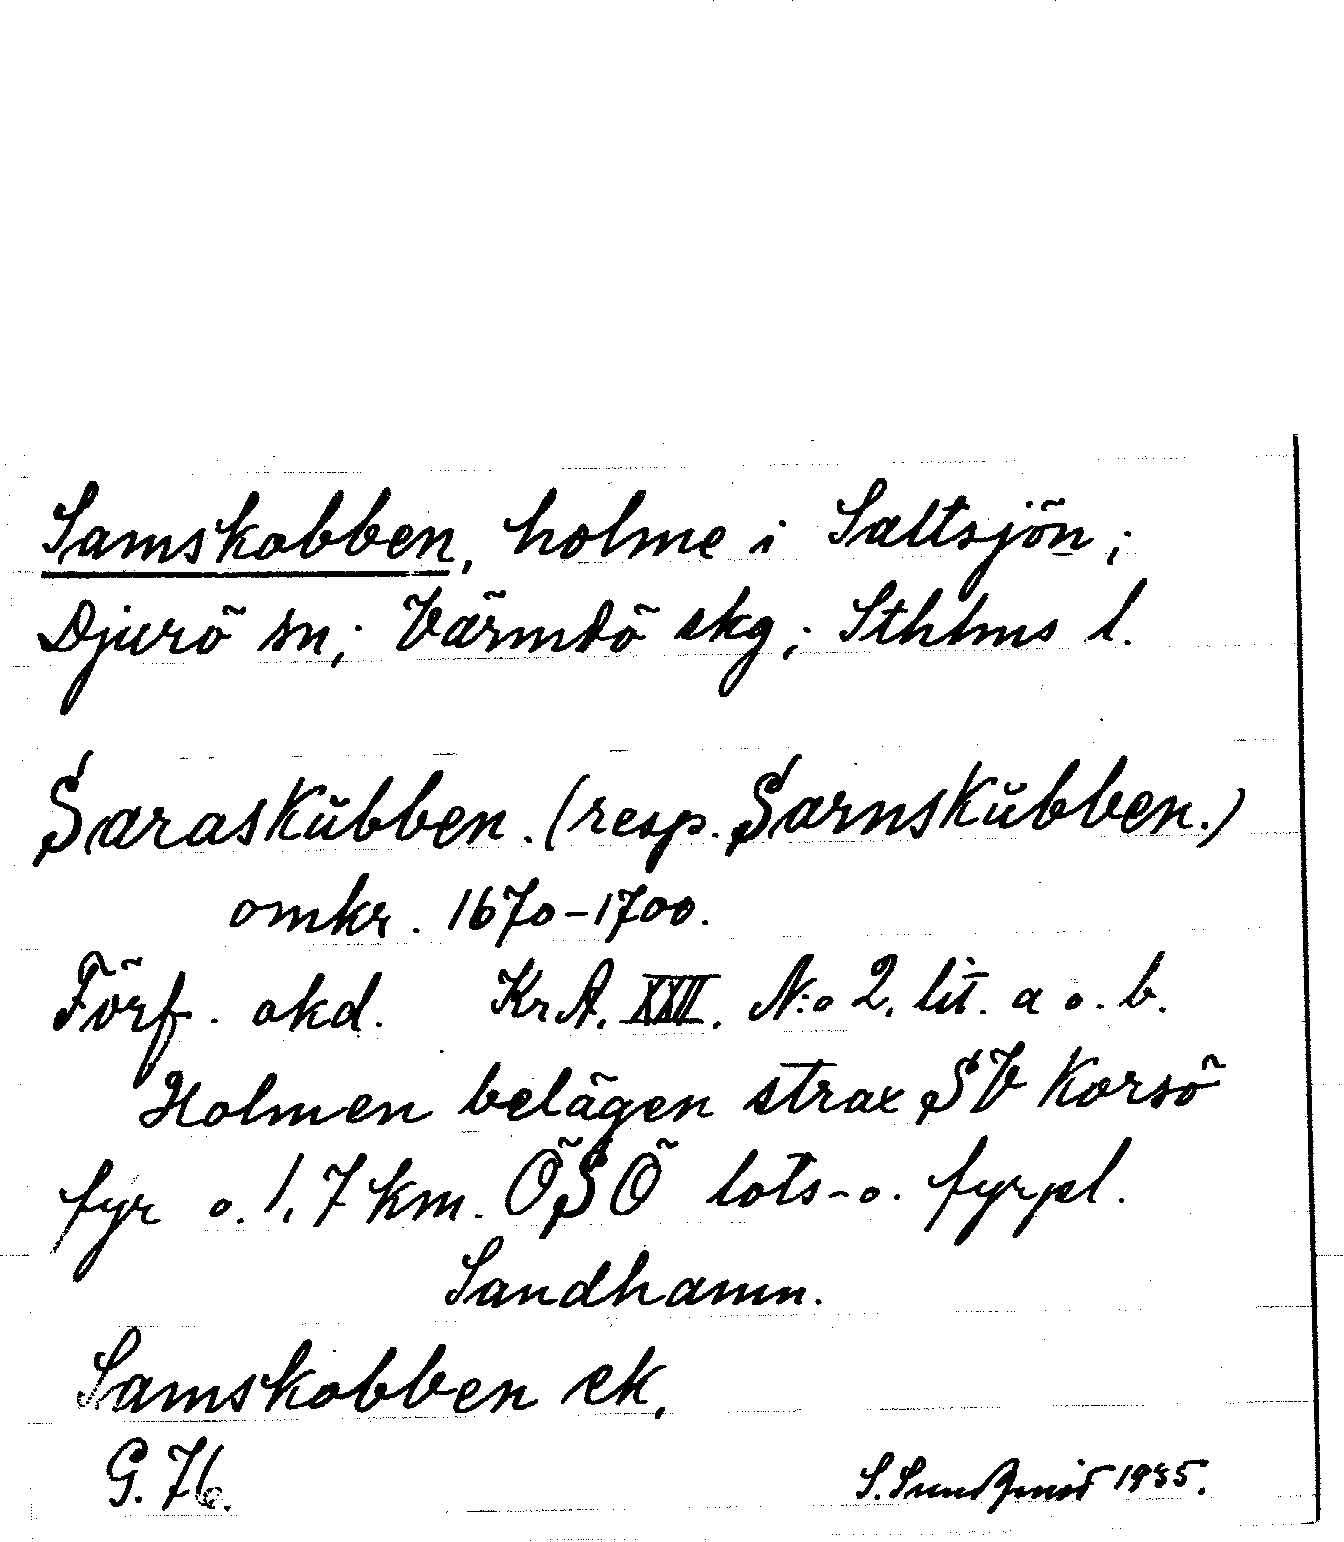 Samskobben, holme i Saltsjön;
Djurö sn; Värmdö skg; Sthlms l.
Saraskŭbben. (resp. Sarnskŭbben.)
omkr. 1670-1700.
Förf. okd. KrA. XXII. N:o 2. lit. a o. b.
Holmen belägen strax SV Korsö
fyr o. 1,7 km. ÖSÖ lots- o. fyrpl.
Sandhamn.
Samskobben ek.
G. 76.
S. Sundqvist 1935.